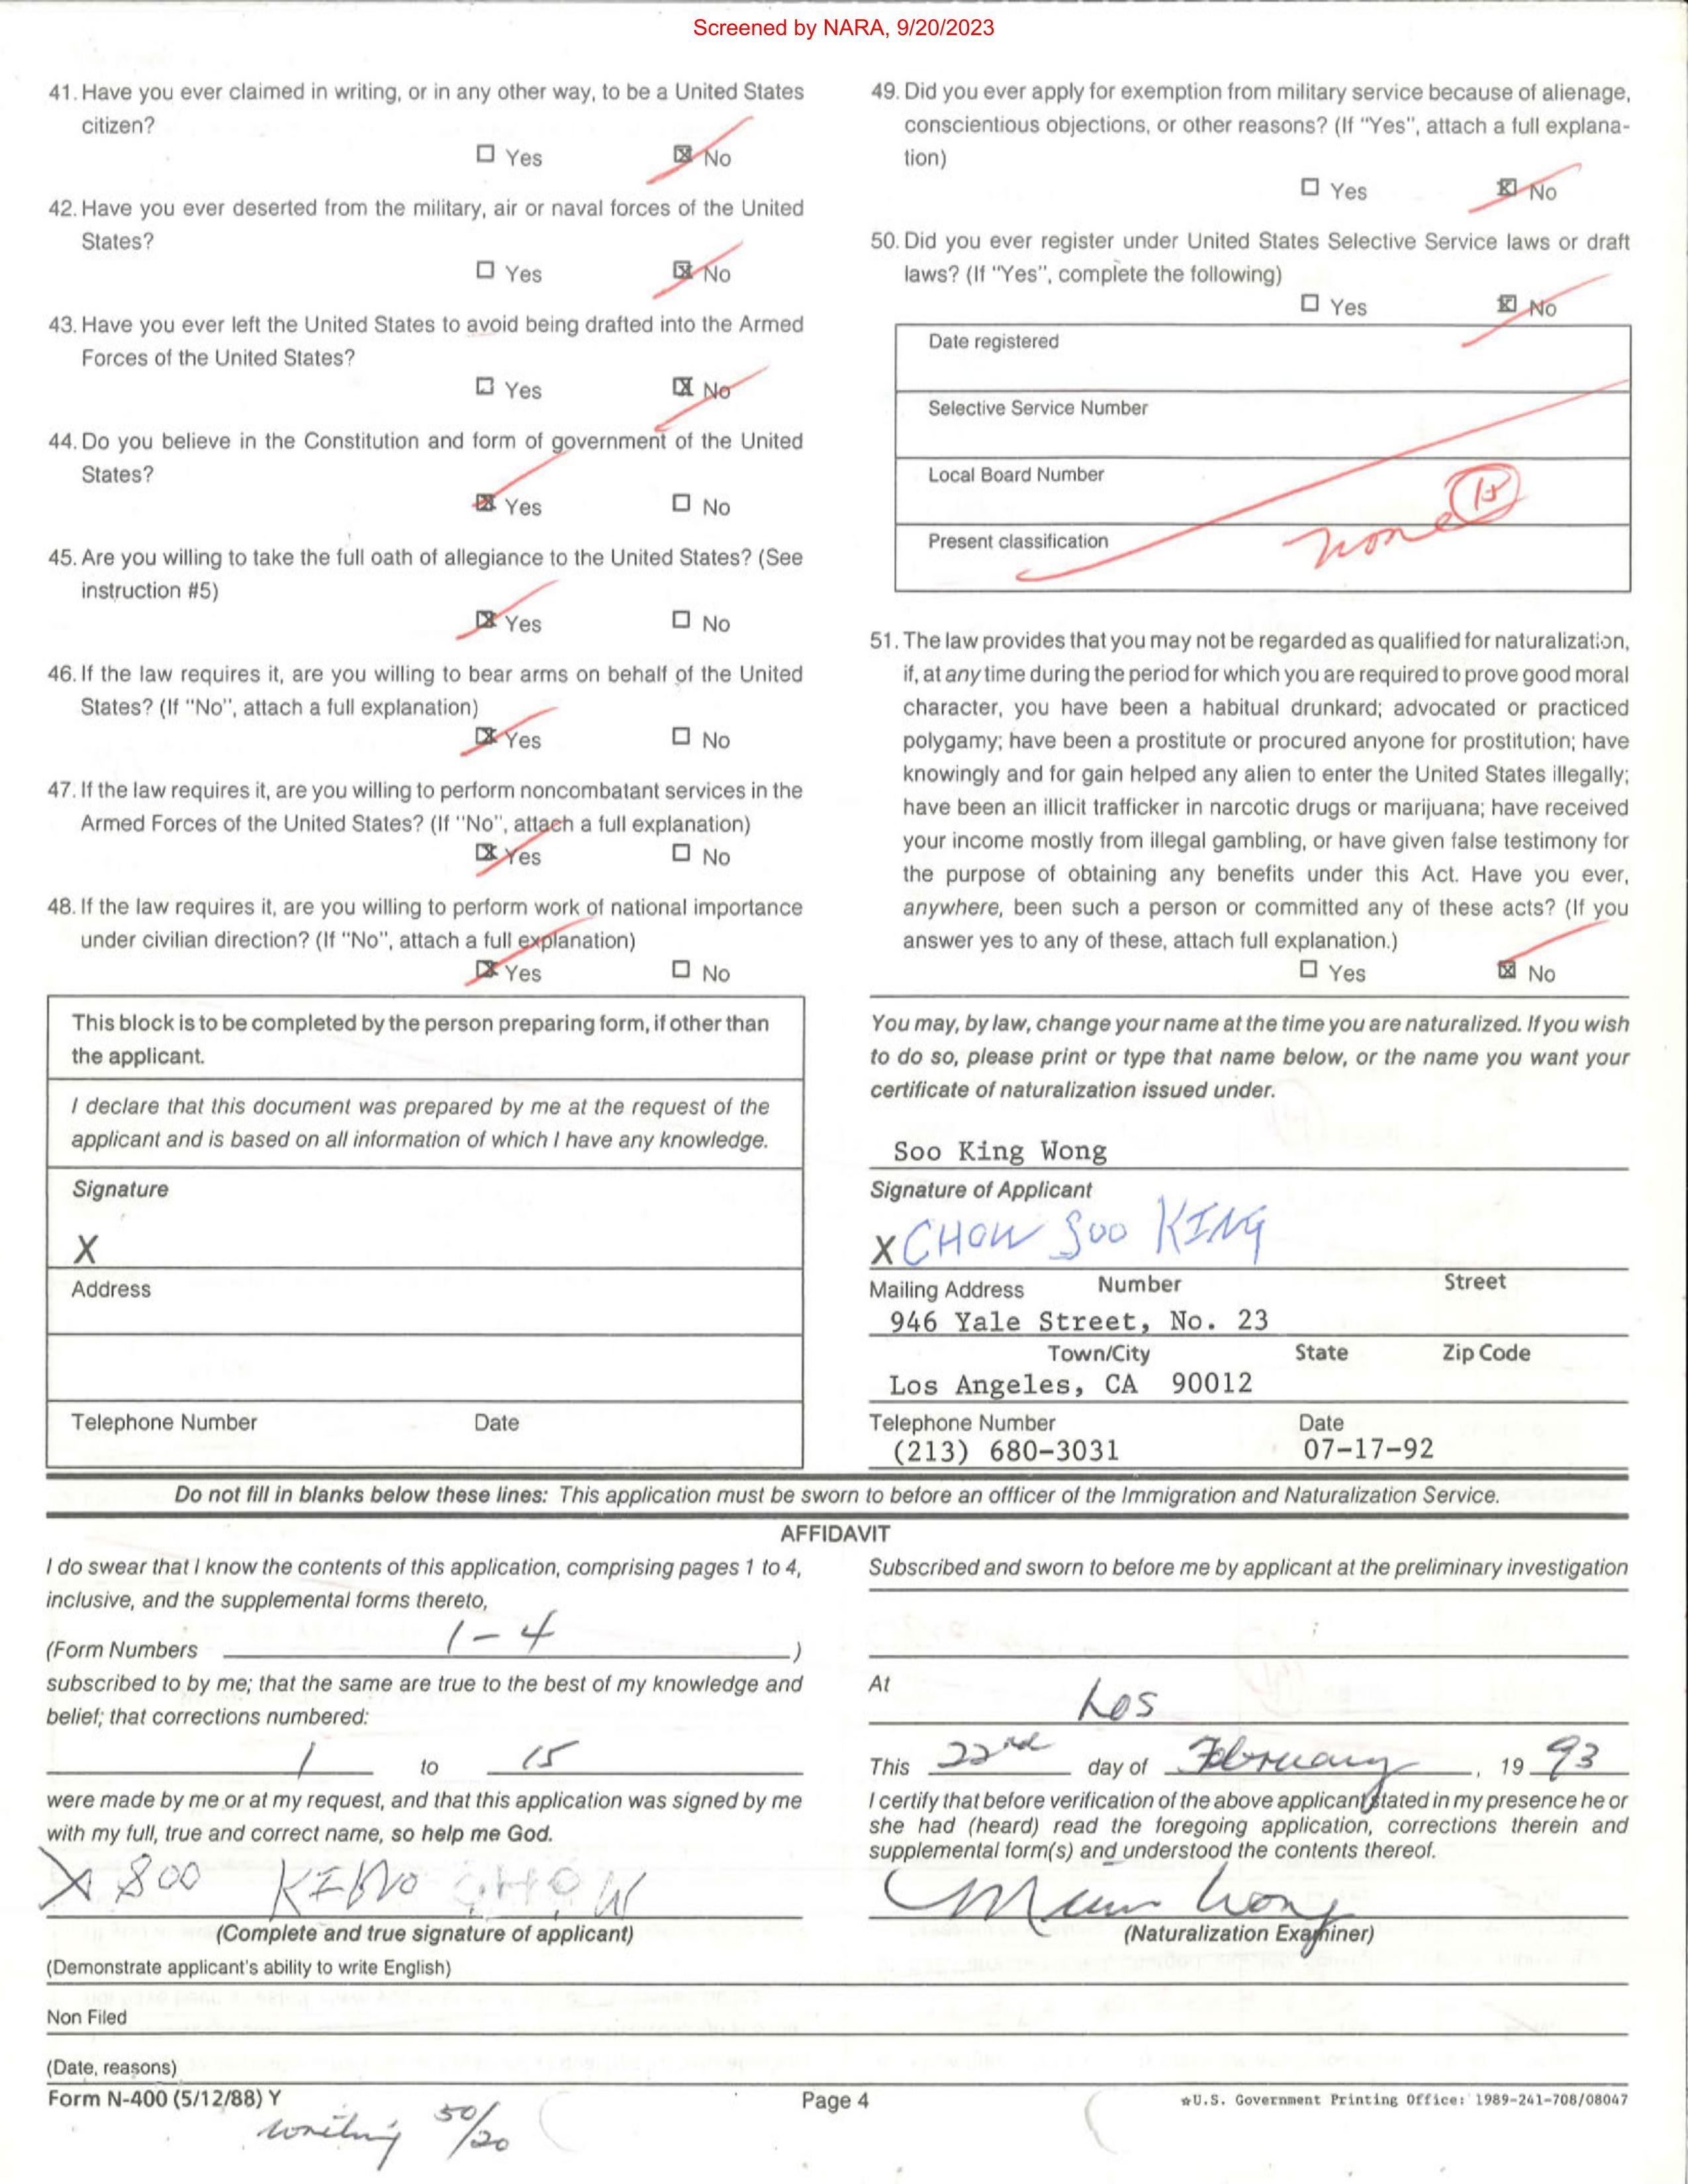 Screened by NARA, 9/20/2023
41. Have you ever claimed in writing, or in any other way, to be a United States
citizen?
☐ Yes ☒ No
42. Have you ever deserted from the military, air or naval forces of the United
States?
☐ Yes ☒ No
43. Have you ever left the United States to avoid being drafted into the Armed
Forces of the United States?
☐ Yes ☒ No
44. Do you believe in the Constitution and form of government of the United
States?
☒ Yes ☐ No
45. Are you willing to take the full oath of allegiance to the United States? (See
instruction #5)
☒ Yes ☐ No
46. If the law requires it, are you willing to bear arms on behalf of the United
States? (If "No", attach a full explanation)
☒ Yes ☐ No
47. If the law requires it, are you willing to perform noncombatant services in the
Armed Forces of the United States? (If "No", attach a full explanation)
☒ Yes ☐ No
48. If the law requires it, are you willing to perform work of national importance
under civilian direction? (If "No", attach a full explanation)
☒ Yes ☐ No
This block is to be completed by the person preparing form, if other than
the applicant.
I declare that this document was prepared by me at the request of the
applicant and is based on all information of which I have any knowledge.
Signature
X
Address
Telephone Number Date
49. Did you ever apply for exemption from military service because of alienage,
conscientious objections, or other reasons? (If "Yes", attach a full explana-
tion)
☐ Yes ☒ No
50. Did you ever register under United States Selective Service laws or draft
laws? (If "Yes", complete the following)
☐ Yes ☒ No
Date registered
Selective Service Number
Local Board Number
15
Present classification none
51. The law provides that you may not be regarded as qualified for naturalization,
if, at any time during the period for which you are required to prove good moral
character, you have been a habitual drunkard; advocated or practiced
polygamy; have been a prostitute or procured anyone for prostitution; have
knowingly and for gain helped any alien to enter the United States illegally;
have been an illicit trafficker in narcotic drugs or marijuana; have received
your income mostly from illegal gambling, or have given false testimony for
the purpose of obtaining any benefits under this Act. Have you ever,
anywhere, been such a person or committed any of these acts? (If you
answer yes to any of these, attach full explanation.)
☐ Yes ☒ No
You may, by law, change your name at the time you are naturalized. If you wish
to do so, please print or type that name below, or the name you want your
certificate of naturalization issued under.
Soo King Wong
Signature of Applicant
X CHOW Soo KING
Mailing Address Number Street
946 Yale Street, No. 23
Town/City State Zip Code
Los Angeles, CA 90012
Telephone Number Date
(213) 680-3031 07-17-92
Do not fill in blanks below these lines: This application must be sworn to before an offficer of the Immigration and Naturalization Service.
AFFIDAVIT
I do swear that I know the contents of this application, comprising pages 1 to 4,
inclusive, and the supplemental forms thereto,
(Form Numbers 1-4 )
subscribed to by me; that the same are true to the best of my knowledge and
belief; that corrections numbered:
1 to 15
were made by me or at my request, and that this application was signed by me
with my full, true and correct name, so help me God.
X SOO KING CHOW
(Complete and true signature of applicant)
Subscribed and sworn to before me by applicant at the preliminary investigation
At Los
This 22nd day of February, 19 93
I certify that before verification of the above applicant stated in my presence he or
she had (heard) read the foregoing application, corrections therein and
supplemental form(s) and understood the contents thereof.
Wong
(Naturalization Examiner)
(Demonstrate applicant's ability to write English)
Non Filed
(Date, reasons)
Form N-400 (5/12/88) Y Page 4 ☆U.S. Government Printing Office: 1989-241-708/08047
writing 50/20